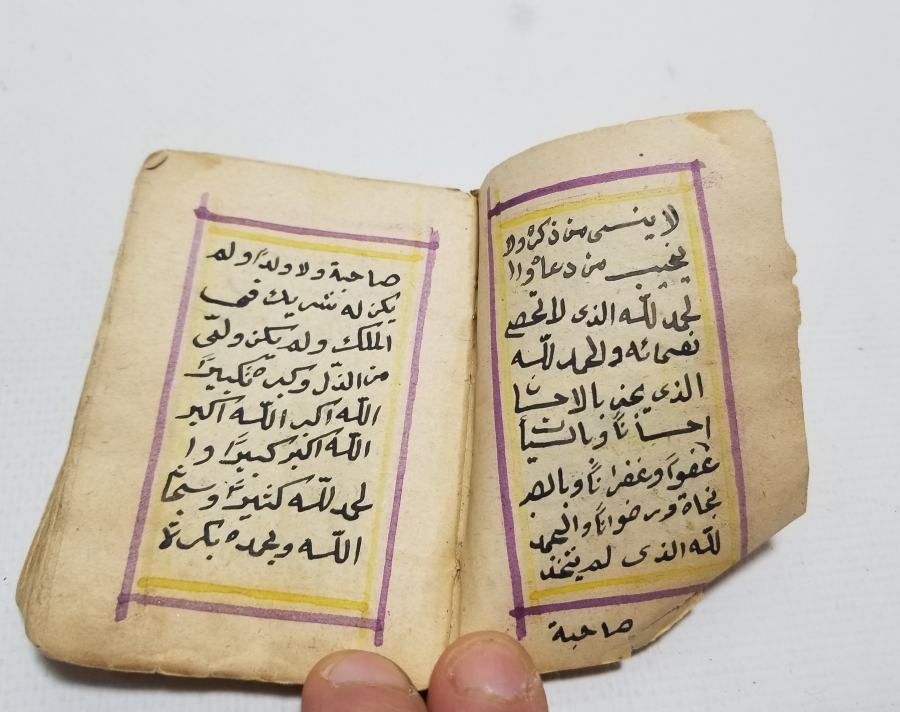 لا ينسى من ذكره ولا
يخيب من دعاه وا
لحمد لله الذى لا تحصى
نعمائه والحمد لله
الذي يجز بالاحسان
احساناً وبالسيأت
عفواً وغفراناً وبالصبر
نجاة ورضواناً والحمد
لله الذى لم يتخذ
صاحبة
صاحبة ولا ولداً ولم
يكن له شريك في
الملك ولم يكن ولي
من الذل وكبره تكبيراً
الله اكبر الله اكبر
الله اكبر كبيراً وا
لحمد لله كثيراً وسبحان
الله وبحمده بكرة